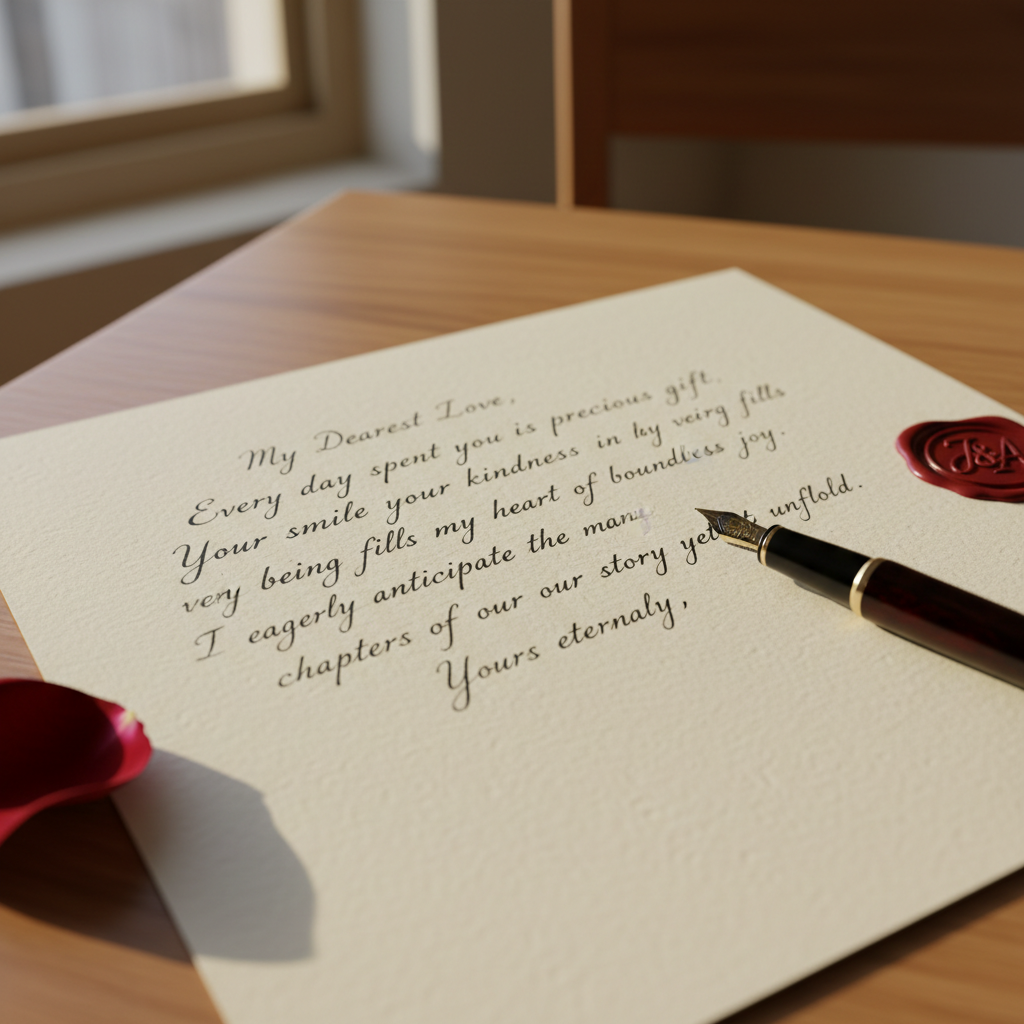 My Dearest Love,
Every day spent you is precious gift.
Your smile your kindness in veirg fills
very being fills my heart of boundless joy.
I eagerly anticipate the many
chapters of our our story yet unflold.
Yours eternaly,
J&A